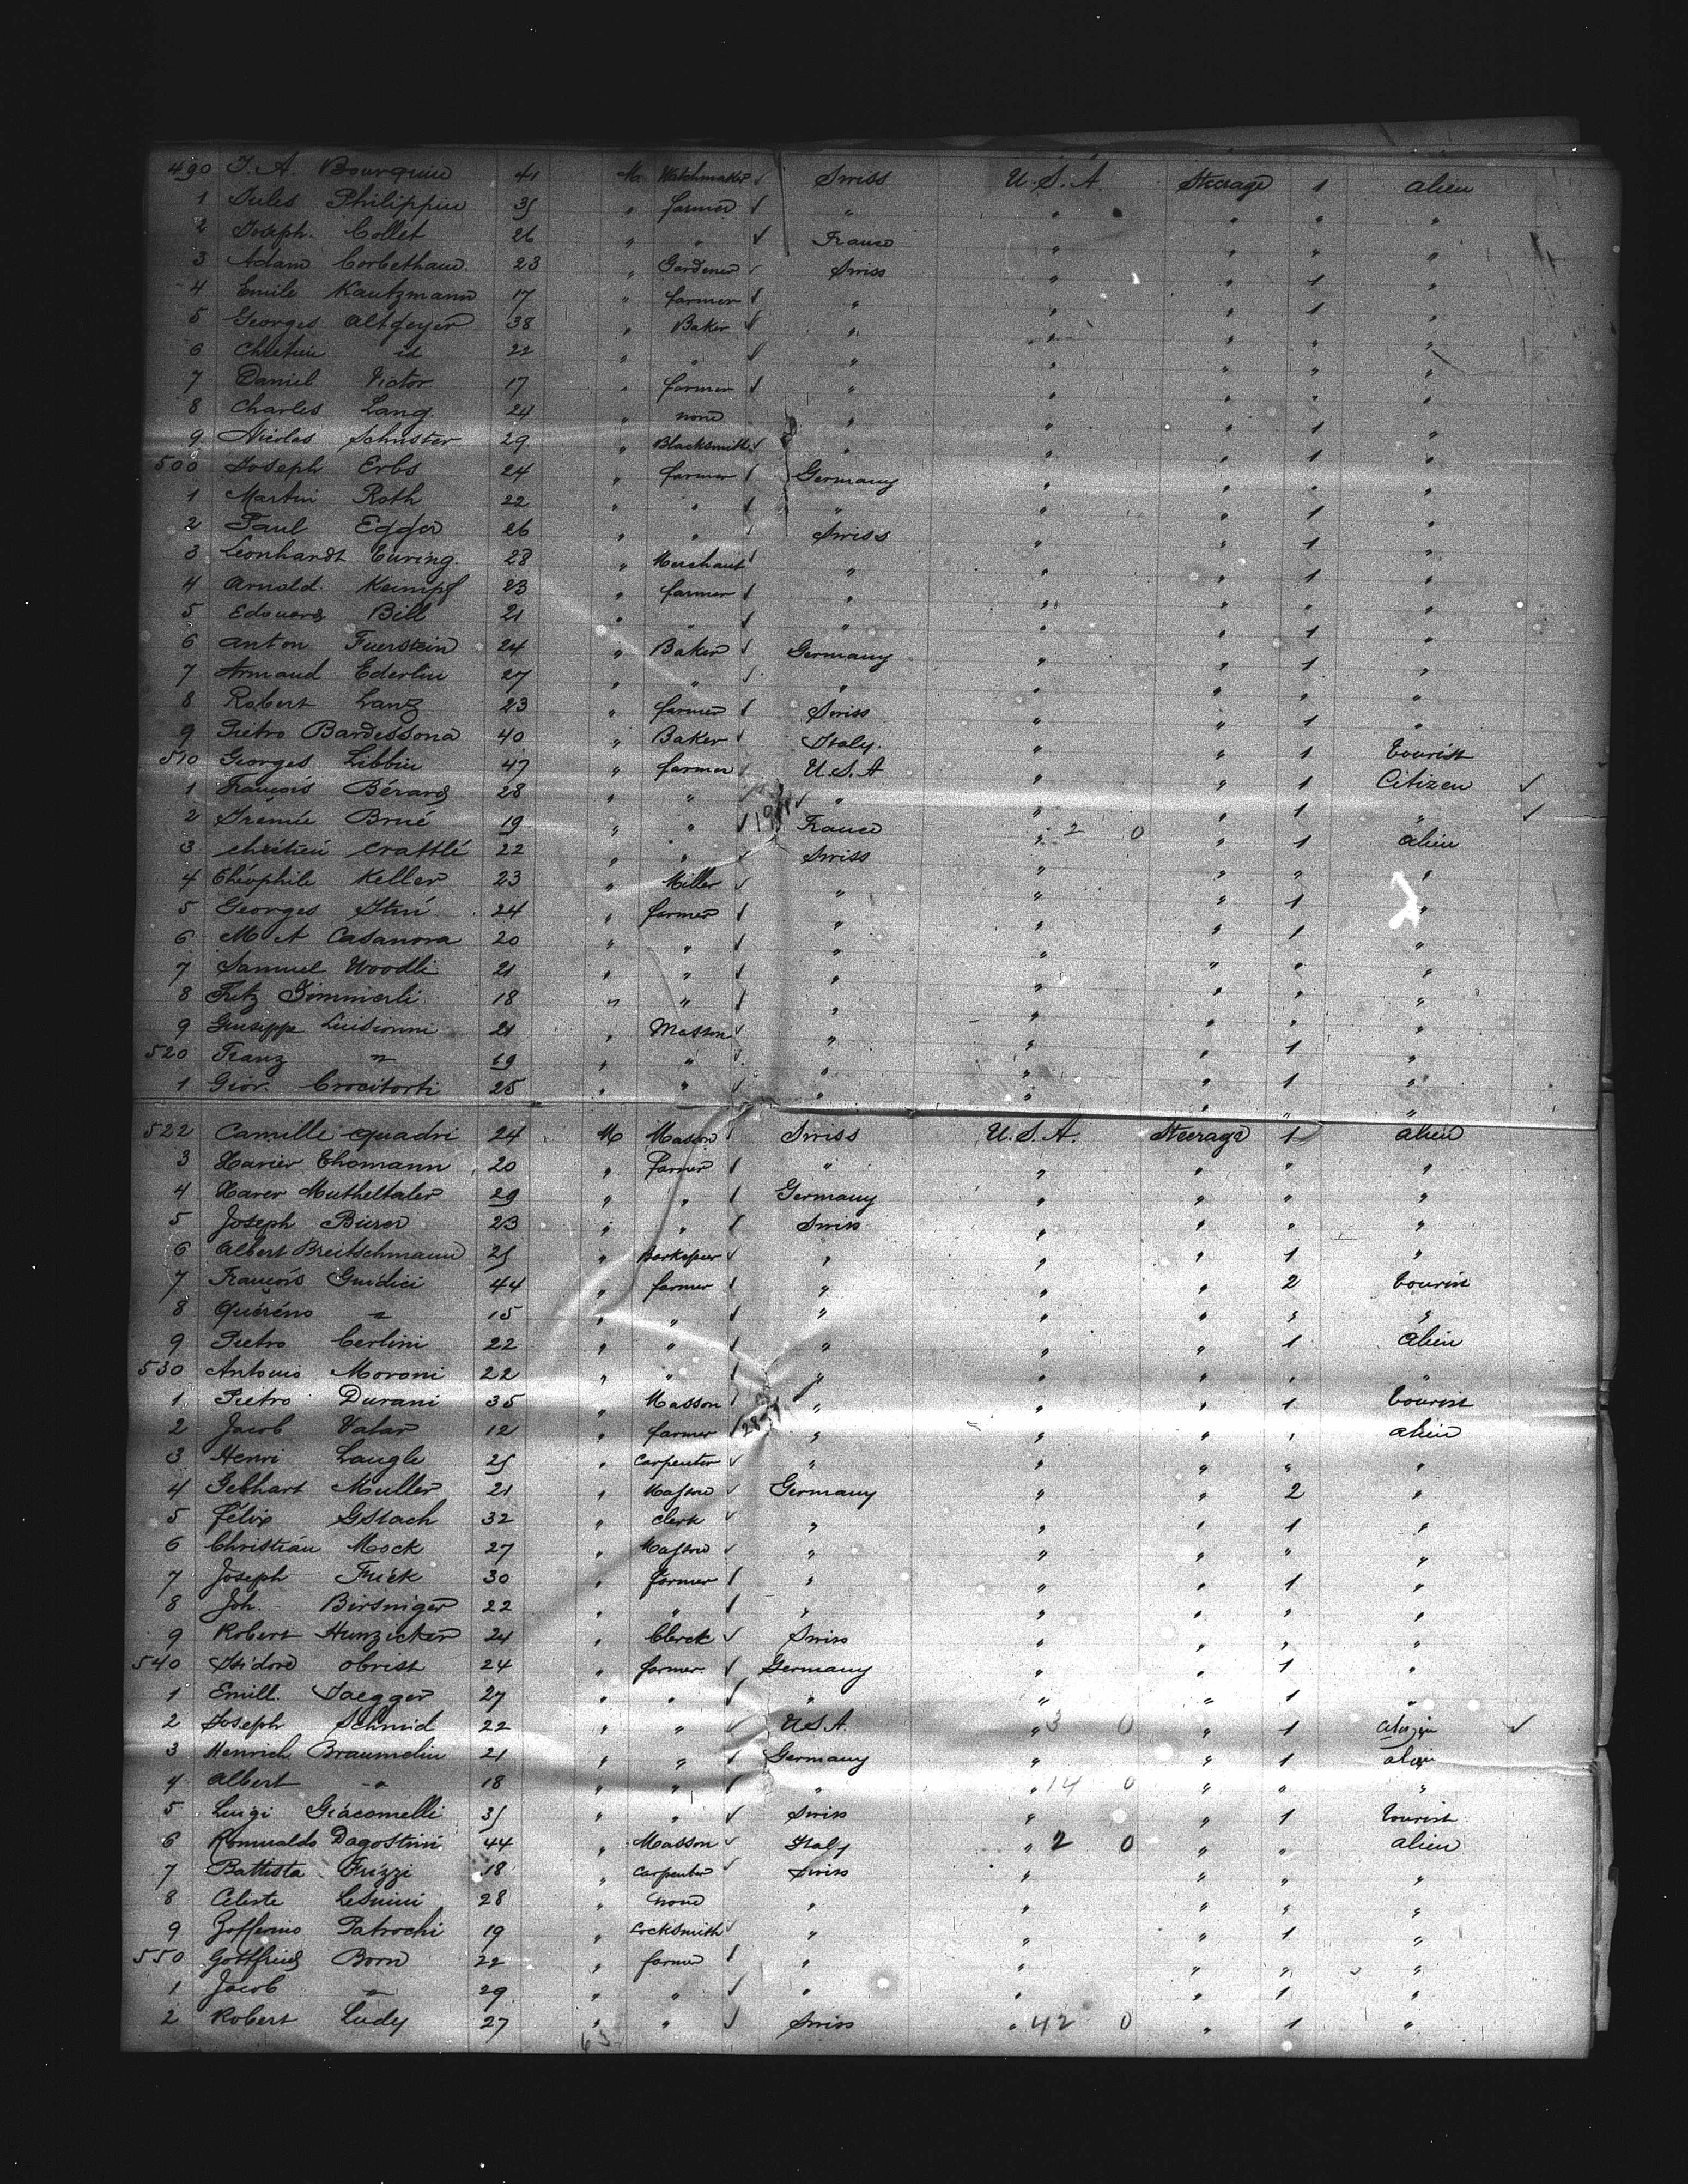 490 J. A. Bourquin 41 M. Watchmaker ✓ Swiss U.S.A. Steerage 1 alien
1 Jules Philippin 35 " farmer ✓ " " " " "
2 Joseph. Collet 26 " " ✓ France " " " "
3 Adam Corbethau 23 " Gardener ✓ Swiss " " 1 "
4 Emile Kautzmann 17 " farmer ✓ " " " 1 "
5 Georges Altfeyer 38 " Baker ✓ " " " " "
6 Chrétien id 22 " " ✓ " " " " "
7 Daniel Victor 17 " farmer ✓ " " " " "
8 Charles Lang. 24 " none " " " 1 "
9 Nicolas Schuster 29 " Blacksmith ✓ " " " 1 "
500 Joseph Erbs 24 " farmer ✓ Germany " " " "
1 Martin Roth 22 " " ✓ " " " 1 "
2 Paul Egger 26 " " Swiss " " 1 "
3 Leonhardt Euring. 28 " Merchant ✓ " " " 1 "
4 Arnold. Keimpf 23 " farmer ✓ " " " " "
5 Edouard Bill 21 " " ✓ " " " 1 "
6 Anton Fuerstein 24 " Baker ✓ Germany " " 1 "
7 Armand Ederlin 27 " " ✓ " " " " "
8 Robert Lanz 23 " farmer ✓ Swiss " " 1 "
9 Pietro Bardessona 40 " Baker ✓ Italy. " " 1 tourist
510 Georges Libbin 47 " farmer ✓ U.S.A " " 1 Citizen ✓
1 François Bérard 28 " " ✓ " " " 1 " ✓
2 Jremie Brué 19 " " ✓ France " 2 0 " 1 alien
3 chrétien Crattlé 22 " " ✓ Swiss " " " "
4 Théophile Keller 23 " Miller ✓ " " " 1 "
5 Georges Itin 24 " farmer ✓ " " " 1 "
6 M A Casanova 20 " " ✓ " " " " "
7 Samuel Woodli 21 " " ✓ " " " " "
8 Fritz Zimmerli 18 " " ✓ " " " " "
9 Giuseppe Luisionni 21 " Masson ✓ " " " 1 "
520 Franz " 19 " " ✓ " " " 1 "
1 Giov. Crocitorti 25 " " ✓ " " " " "
522 Camille Quadri 24 M Mason ✓ Swiss U.S.A. Steerage 1 alien
3 Xavier Thomann 20 " Farmer ✓ " " " " "
4 Xaver Mutheltaler 29 " " ✓ Germany " " " "
5 Joseph Bürer 23 " " ✓ Swiss " " " "
6 Albert Breitschmann 25 " Barkeper ✓ " " " 1 "
7 François Guidici 44 " farmer ✓ " " " 2 tourist
8 Quéréno " 15 " " ✓ " " " " "
9 Pietro Cerlini 22 " " ✓ " " " 1 alien
530 Antonio Moroni 22 " " ✓ " " " " "
1 Pietro Durani 35 " Masson ✓ " " " 1 tourist
2 Jacob Valar 12 " farmer ✓ " " " " alien
3 Henri Laugle 25 " Carpenter ✓ " " " " "
4 Gebhart Muller 21 " Masson ✓ Germany " " 2 "
5 Félix Gstach 32 " Clerk ✓ " " " 1 "
6 Christian Mock 27 " Masson ✓ " " " " "
7 Joseph Frick 30 " farmer ✓ " " " 1 "
8 Joh. Birsniger 22 " " ✓ " " " " "
9 Robert Hunzicker 24 " Clerck ✓ Swiss " " " "
540 Isidore Obrist 24 " farmer. ✓ Germany " " 1 "
1 Emill. Jaegger 27 " " ✓ " " " 1 "
2 Joseph Schmid 22 " " ✓ U.S.A. " 3 0 " 1 citizen ✓
3 Henrich Braumelin 21 " " ✓ Germany " " 1 alien
4 Albert " 18 " " ✓ " " 14 0 " " "
5 Luigi Giacomelli 35 " " ✓ Swiss " " 1 tourist
6 Romualdo Dagostini 44 " Masson ✓ Italy " 2 0 " " alien
7 Battista Frizzi 18 " Carpenter ✓ Swiss " " " "
8 Celeste Lesnini 28 " none " " " " "
9 Zoffonio Patrochi 19 " Locksmith ✓ " " " 1 "
550 Gottfried Born 22 " farmer ✓ " " " " "
1 Jacob " 29 " " ✓ " " " 1 "
2 Robert Ludy 27 " " ✓ Swiss " 42 0 " 1 "